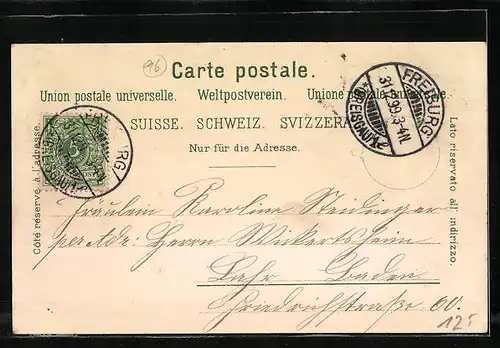 96
Carte postale.
Union postale universelle. Weltpostverein. Unione postale universale.
SUISSE. SCHWEIZ. SVIZZERA.
Nur für die Adresse.
Côté réservé à l'adresse.
Lato riservato all indirizzo.
FREIBURG
(BREISGAU)
31 99.3-4N.
5
Fräulein Karoline Steidinger
per Adr: Herrn Wickertsheim
Lahr Baden
Friedrichstraße 60.
125